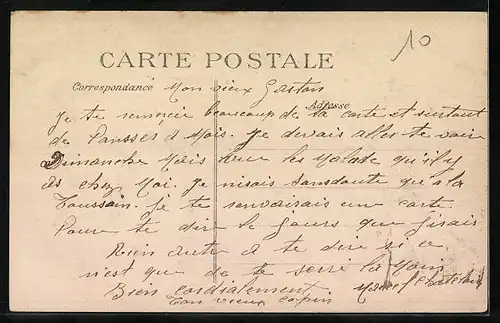 10
CARTE POSTALE
Correspondance Mon vieux Gaston
Adresse
Je te remercie beaucoup de la carte et surtout
de Pansser a Mois. Je devais aller te voir
Dimanche Mais les Malade qu'il y
as chez Moi. Je n'irais sansdoute qu'a la
Toussain. Je te renvairais une carte
Pour te dire le Jours que J'irais
Rien autre a te dire si ce
n'est que de te serré la Main
Bien cordialement Marcel
Ton vieux copin